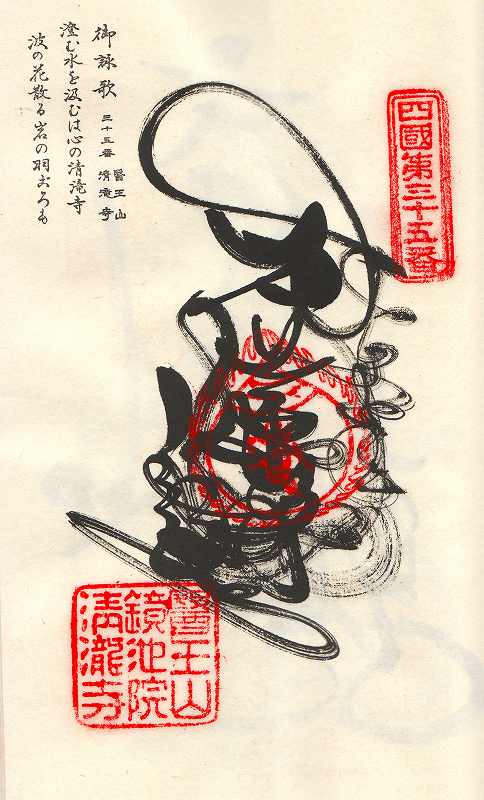 四國第三十五番
御詠歌 三十五番 醫王山 清滝寺
澄む水を汲むは心の清滝寺
波の花散る岩の羽ごろも
醫王山
鏡池院
清瀧寺